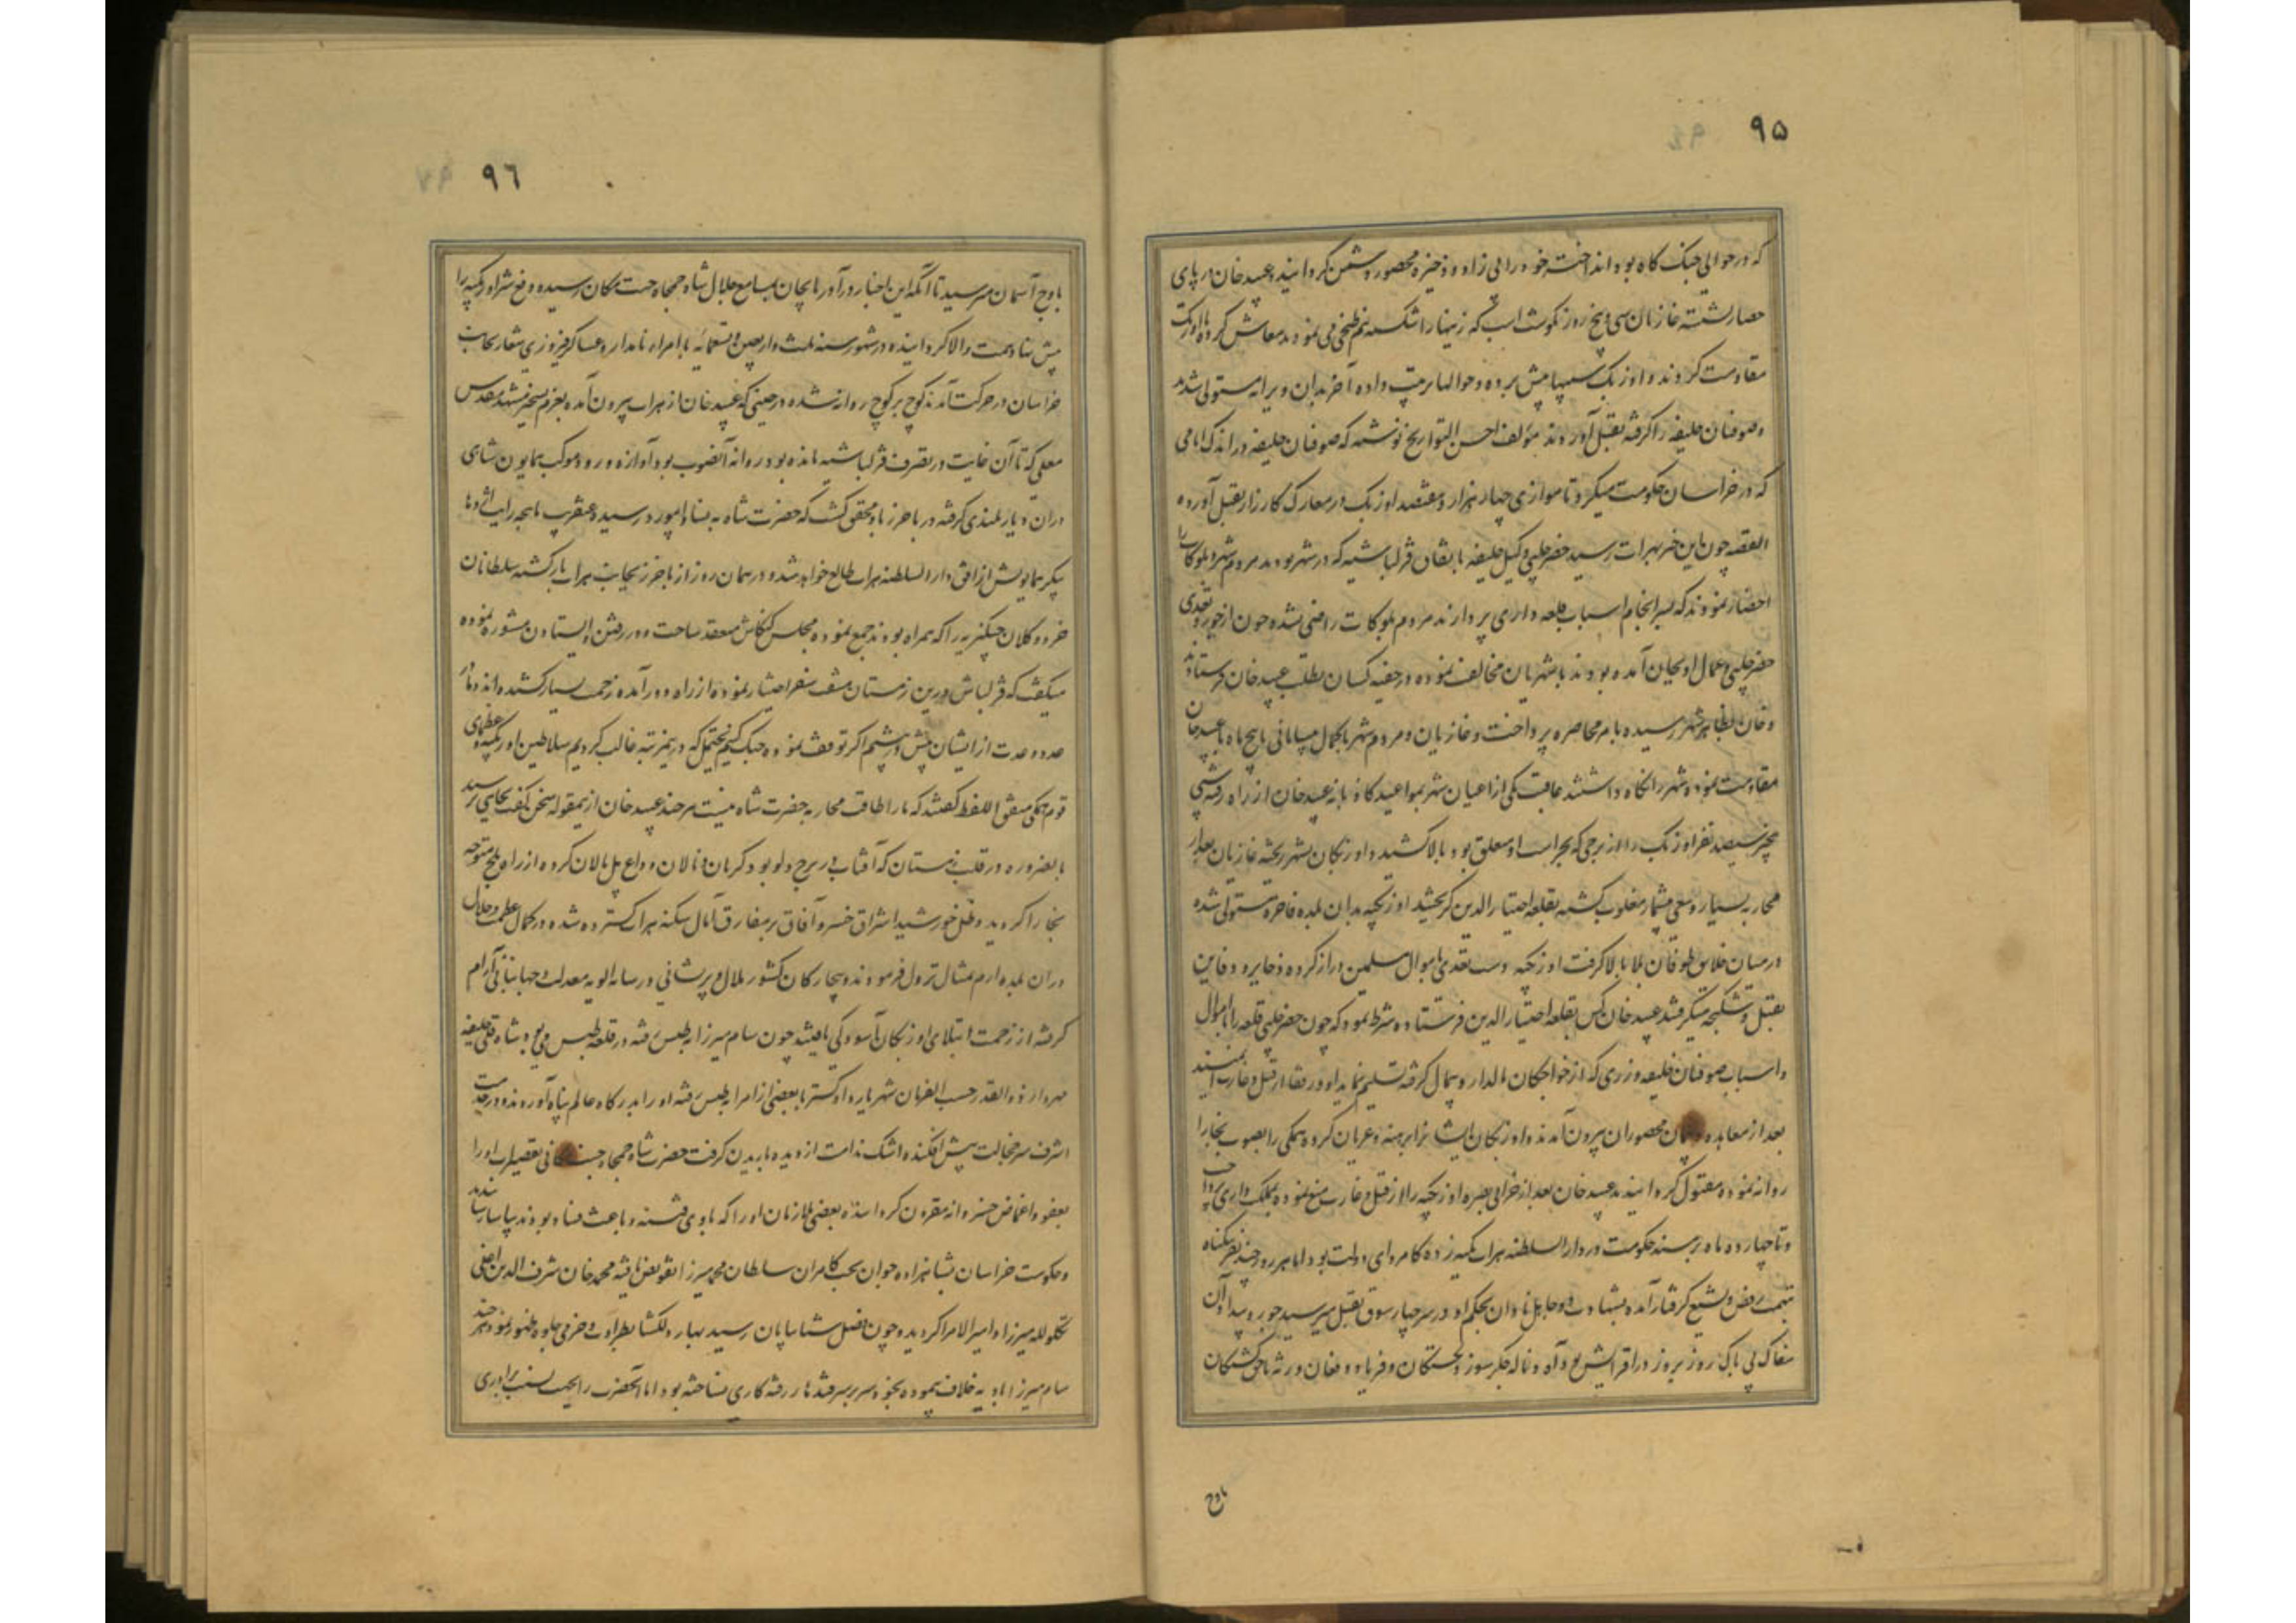 ۹۵
که در حوالی جنک کاه بود انداخته خود را بی زاد و ذخیره محصور دشمن کردانید و عبید خان در پای
حصار نشسته غازیان سی و پنج روز بکوشت اسب که زینها را شکسته نیم طبخی می نمودند معاش کرده با اوزبک
مقاومت کردند و اوزبک سیبها پیش برده و حوالها ترتیب داده آخر بدان ویرانه مستولی شدند
و صوفیان خلیفه را کرفته بقتل آوردند مؤلف احسن التواریخ نوشته که صوفیان خلیفه در اندک ایامی
که در خراسان حکومت میکرد تا موازی چهار هزار و هفتصد اوزبک در معارک کارزار بقتل آورده
القصه چون این خبر بهرات رسید خضر چلپی وکیل خلیفه باتفاق قزلباشیه که در شهر بودند مردم شهر و بلوکات را
احضار نمودند که بسرانجام اسباب قلعه داری پردازند مردم بلوکات راضی نشده چون از جور و تعدی
خضر چلپی و عمال او بجان آمده بودند با شهریان مخالفت نموده در خفیه کسان بطلب عبید خان فرستادند
و خان بظاهر شهر رسیده بامر محاصره پرداخت و غازیان و مردم شهر بکمال پاسبانی پنج ماه با عبید خان
مقاومت نموده شهر را نکاه داشتند عاقبت یکی از اعیان شهر بمواعید کاذبانه عبید خان از راه رفته شبی
سیصد نفر اوزبک را از برجی که بحراست او معلق بود بالا کشید و اوزبکان بشهر ریخته غازیان بعد از
محاربه بسیار و سعی بیشمار مغلوب کشته بقلعه اختیار الدین کریختند اوزبکیه بدان بلده فاخره مستولی شده
در میان خلایق طوفان بلا بالا کرفت اوزبکیه دست تعدی باموال مسلمین دراز کرده ذخایر و دفاین
بقتل و شکنجه میکرفتند عبید خان کس بقلعه اختیار الدین فرستاده شرط نمود که چون خضر چلپی قلعه را با اموال
و اسباب صوفیان خلیفه و زری که از خواجکان مالدار و سمال کرفته تسلیم نماید او و رفقا از قتل و غارت ایمنند
بعد از معاهده و پیمان محصوران بیرون آمدند و اوزبکان ایشانرا برهنه و عریان کرده همکی را بصوب بخارا
روانه نموده مقتول کردانیدند عبید خان بعد از خرابی بصره اوزبکیه را از قتل و غارت منع نموده بملک داری پرداخت
و تا چهارده ماه بر مسند حکومت در دار السلطنه هراة تکیه زده کامروای دولت بود اما هر روز چند نفر بیکناه
بتهمت رفض و تشیع کرفتار آمده بشهادت دو جاهل نادان بحکم او در سر چهار سوق بقتل میرسید جور و بیداد آن
سفاک بی باک روز بروز در افزایش بود و آه و ناله جکر سوز دلخستکان و فریاد و فغان ورثه ناحق کشتکان
باوج
۹٦
باوج آسمان میرسید تا آنکه این اخبار در آذربایجان بمسامع جلال شاه جمجاه جنت مکان رسیده دفع شر اوزبکیه را
پیش نهاد همت والا کردانیده در شهور سنه ثلث و اربعین و تسعمائه با امراء نامدار و عساکر فیروزی شعار بجانب
خراسان در حرکت آمدند کوچ بر کوچ روانه شده در حینی که عبید خان از هراة بیرون آمده بعزم تسخیر مشهد مقدس
معلی که تا آن غایت در تصرف قزلباشیه مانده بود روانه آنصوب بود آوازه ورود موکب همایون شاهی
در ان دیار بلندی کرفته در باخرز باو محقق کشت که حضرت شاه به نشابور رسیده و عنقریب ماهچه رایت اژدها
پیکر همایونش از افق دار السلطنه هراة طالع خواهد شد و در همان روز از باخرز بجانب هراة بازکشته سلطانان
خرد و کلان چنکیزیه را که همراه بودند جمع نموده مجلس کنکاش منعقد ساخت و در رفتن و ایستادن مشوره نموده
میکفت که قزلباش درین زمستان مشقت سفر اختیار نموده از راه دور آمده زحمت بسیار کشیده اند و ما در
عدد و عدت از ایشان پیش و بیشیم اکر توقف نموده جنک کنیم یحتمل که درینمرتبه غالب کردیم سلاطین اوزبکیه و عظمای
قوم همکی متفق اللفظ کفتند که ما را طاقت محاربه حضرت شاه نیست هر چند عبید خان ازینمقوله سخن کفت بجایی نرسید
بالضروره در قلب زمستان که آفتاب در برج دلو بود کریان و نالان وداع پل مالان کرده از راه بلخ متوجه
بخارا کردید و ظل خورشید اشراق خسرو آفاق بر مفارق آمال سکنه هراة کسترده شده در کمال عظمت و جلال
در ان بلده ارم مثال نزول فرمودند و بیچارکان کشور ملال و پریشانی در سایه الویه معدلت و جهانبانی آرام
کرفته از زحمت ابتلای اوزبکان آسودکی یافتند چون سام میرزا بطبس رفته در قلعه طبس می بود شاه قلی خلیفه
مهردار ذوالقدر حسب الفرمان شهریار داد کستر با بعضی از امرا بطبس رفته او را بدرکاه عالم پناه آوردند و در خدمت
اشرف سر خجالت پیش افکنده اشک ندامت از دیده باریدن کرفت حضرت شاه جمجاه جنت مکانی تقصیرات او را
بعفو و اغماض خسروانه مقرون کردانیده بعضی ملازمان او را که بادی فتنه و باعث فساد بودند بیاسا رسانیدند
و حکومت خراسان بشاهزاده جوان بخت کامران سلطان محمد میرزا تفویض یافته محمد خان شرف الدین اغلی
تکلو لله میرزا و امیر الامرا کردید و چون فصل شتا بپایان رسید بهار دلکشا بطراوت و خرمی جلوه ظهور نمود هر چند
سام میرزا بادیه خلاف پیموده بخود سر بر سر رفته نا ساخته بود اما آنحضرت را بحسب نسب برادری